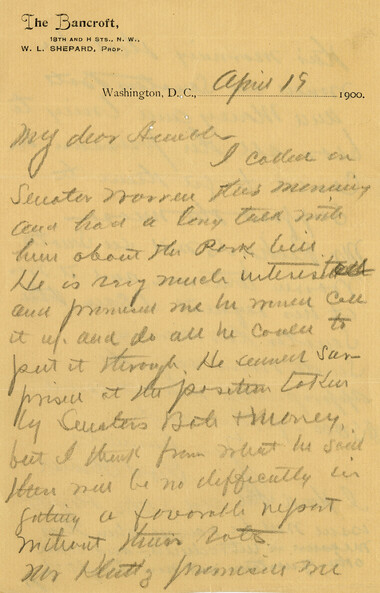 The Bancroft,
18TH AND H STS., N. W.,
W. L. SHEPARD, PROP.
Washington, D. C., April 19 1900.
My dear
I called on
Senator Warren this morning
and had a long talk with
him about the Park bill.
He is very much interested
and promised me he would call
it up and do all he could to
put it through. He seemed sur-
prised at the position taken
by Senators Bate & Money,
but I think from what he said
there will be no difficulty in
getting a favorable report
without their vote.
Mr Kluttz promises me